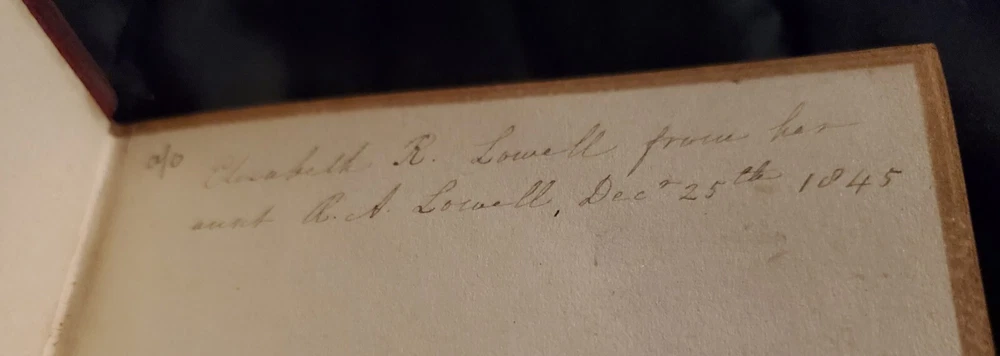 o/o Elizabeth R. Lowell from her
aunt R. A. Lowell, Decr 25th 1845